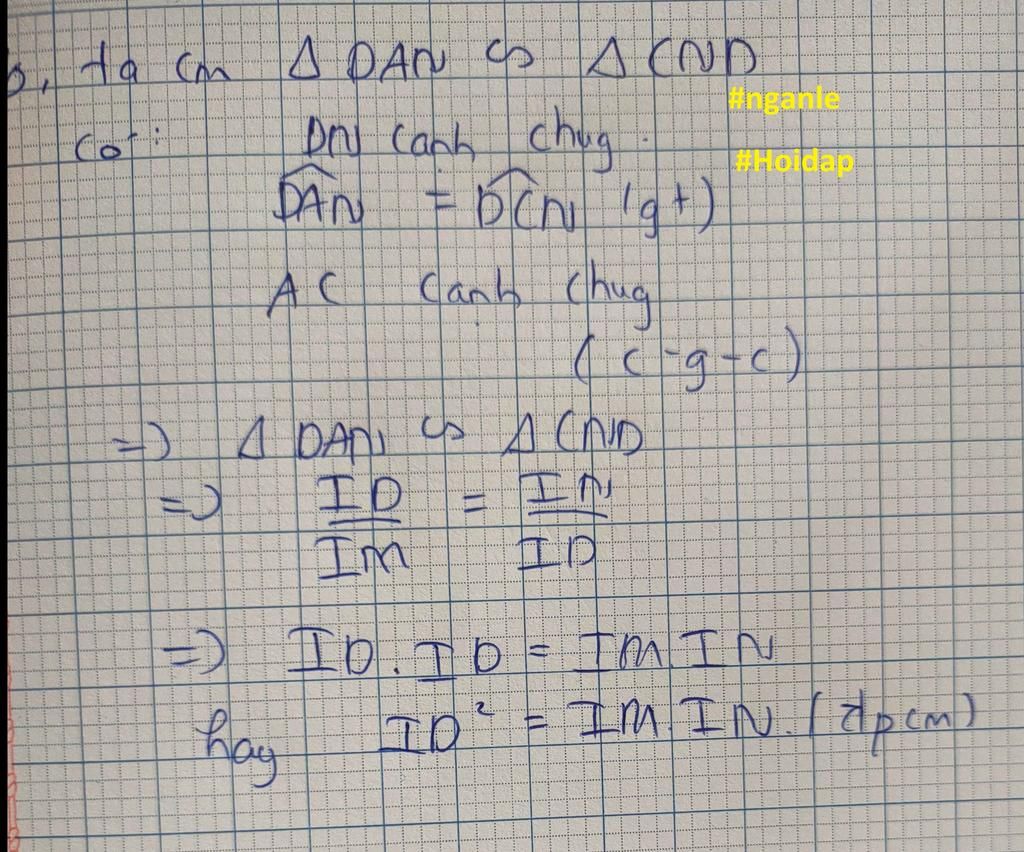 b, ta cm Δ DAN ∽ Δ CND
#nganle
có: DN cạnh chug.
#Hoidap
D̂AN = D̂CN (gt)
AC cạnh chug
(c-g-c)
=> Δ DAN ∽ Δ CND
=> ID/IM = IN/ID
=> ID.ID = IM.IN
hay ID² = IM.IN. (đpcm)